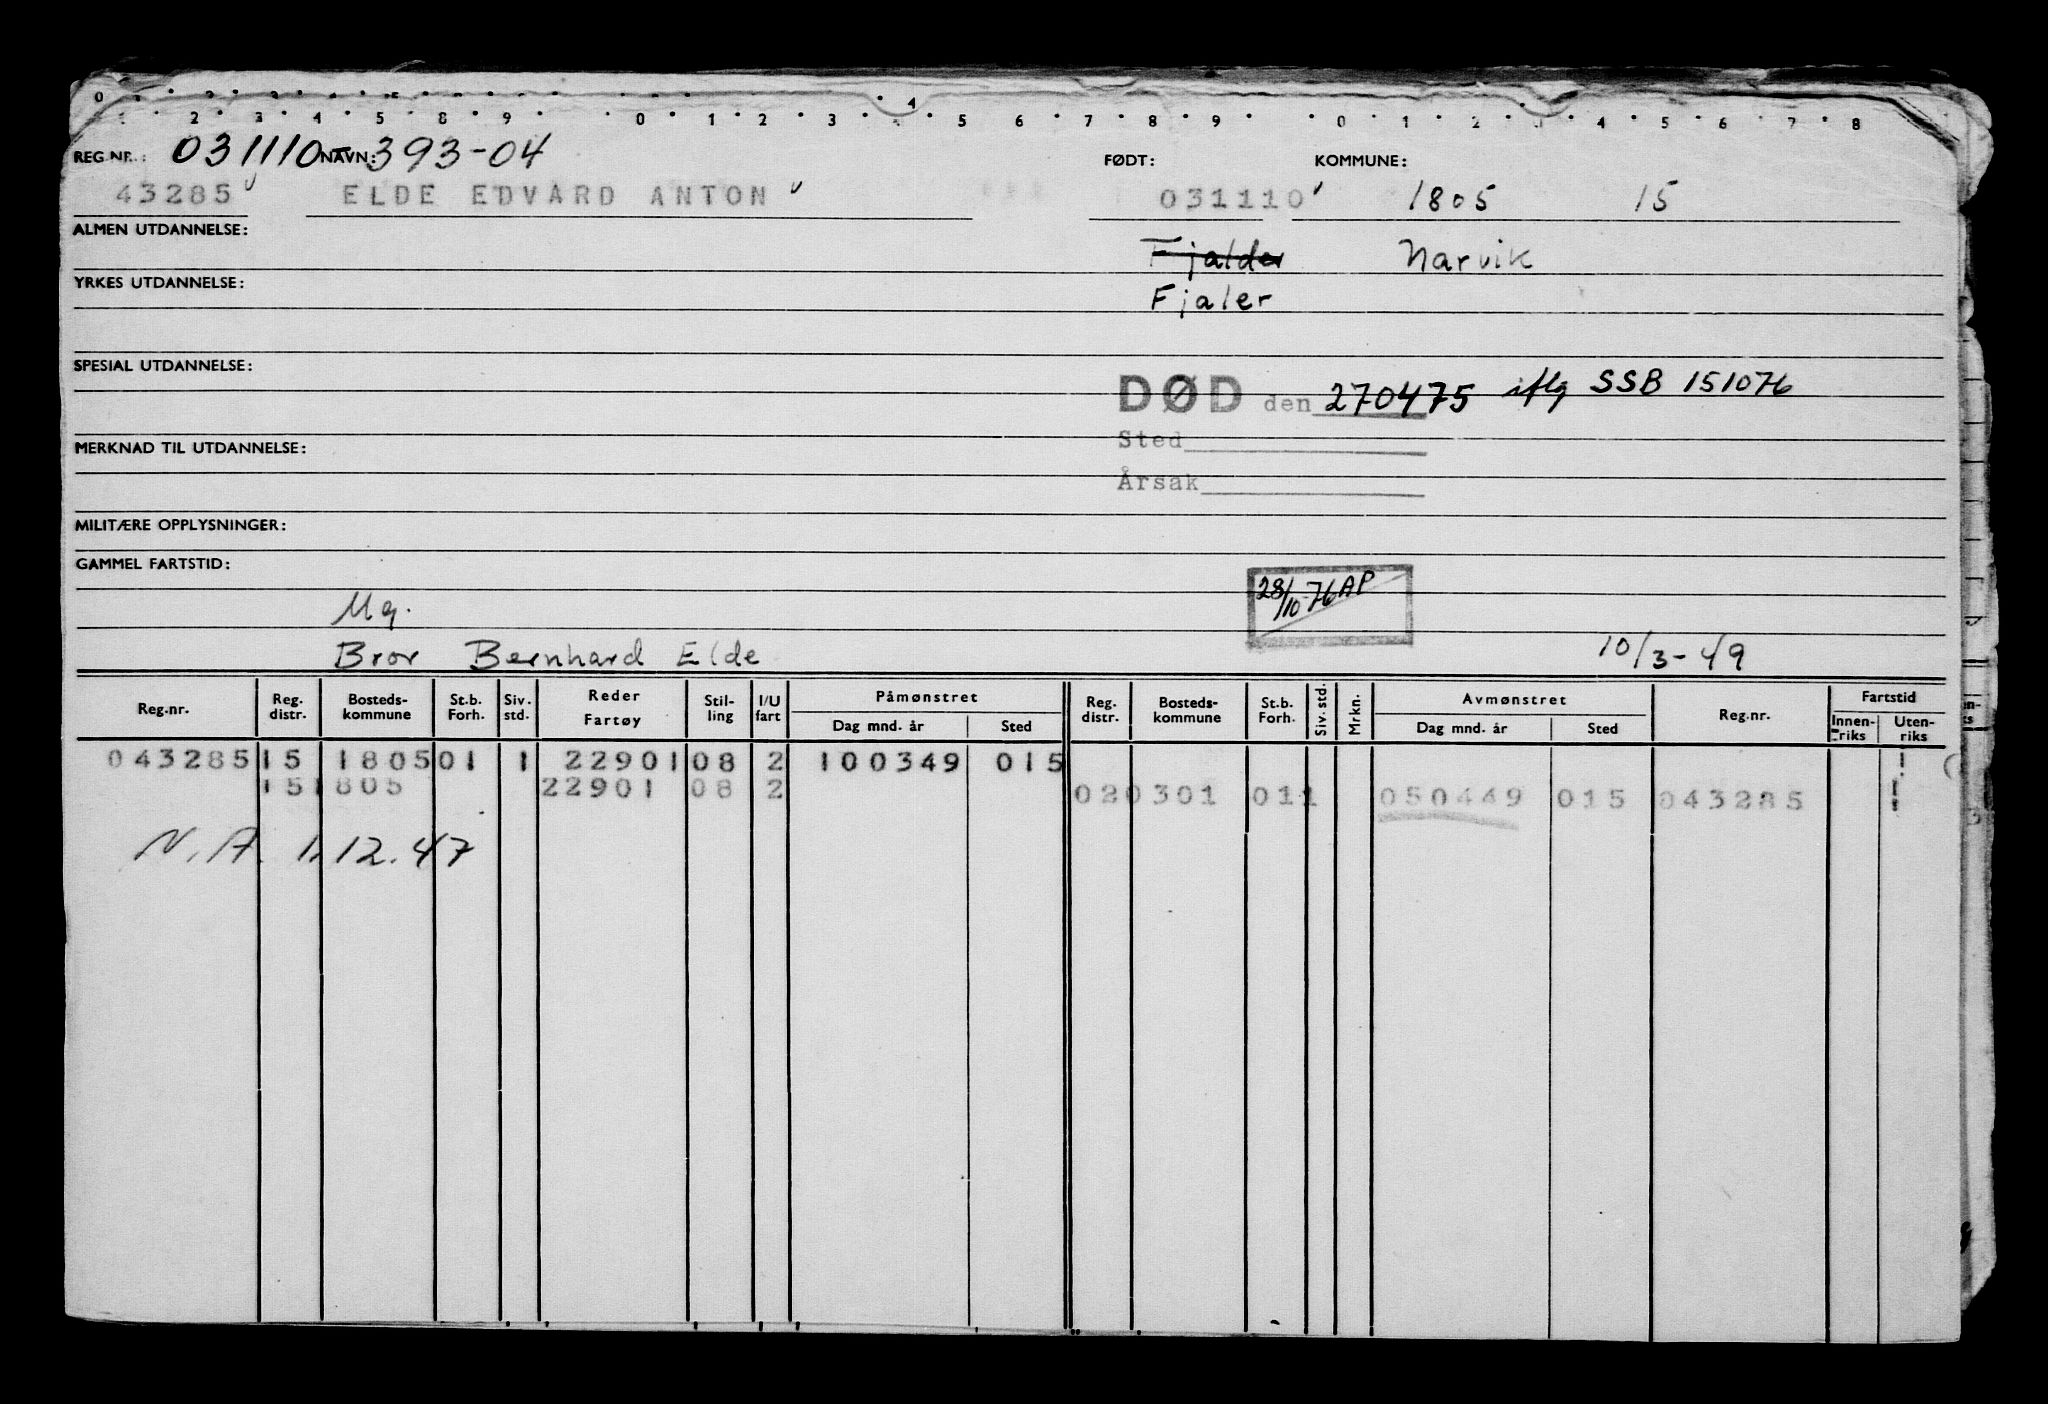 0 4
1 2 3 4 5 8 9 0 1 2 3 4 5 6 7 8 9 0 1 2 3 4 5 6 7 8
REG.NR.: 031110 NAVN: 393-04 FØDT: KOMMUNE:
43285 ELDE EDVARD ANTON 031110 1805 15
ALMEN UTDANNELSE: Fjalder Narvik
YRKES UTDANNELSE: Fjaler
SPESIAL UTDANNELSE:
DØD den 270475 iflg SSB 151076
MERKNAD TIL UTDANNELSE: Sted
Årsak
MILITÆRE OPPLYSNINGER:
GAMMEL FARTSTID:
28/10-76 AP
Ug.
Bror Bernhard Elde 10/3-49
Reg.nr. Reg. distr. Bosteds- kommune St.b. Forh. Siv. std. Reder Fartøy Stil- ling I/U fart Påmønstret Dag mnd. år Sted Reg. distr. Bosteds- kommune St.b. Forh. Siv. std. Mrkn. Avmønstret Dag mnd. år Sted Reg.nr. Fartstid Innen- riks Uten- riks
043285 15 1805 01 1 22901 08 2 100349 015
15 1805 22901 08 2 020301 011 050449 015 043285
N.A. 1.12.47